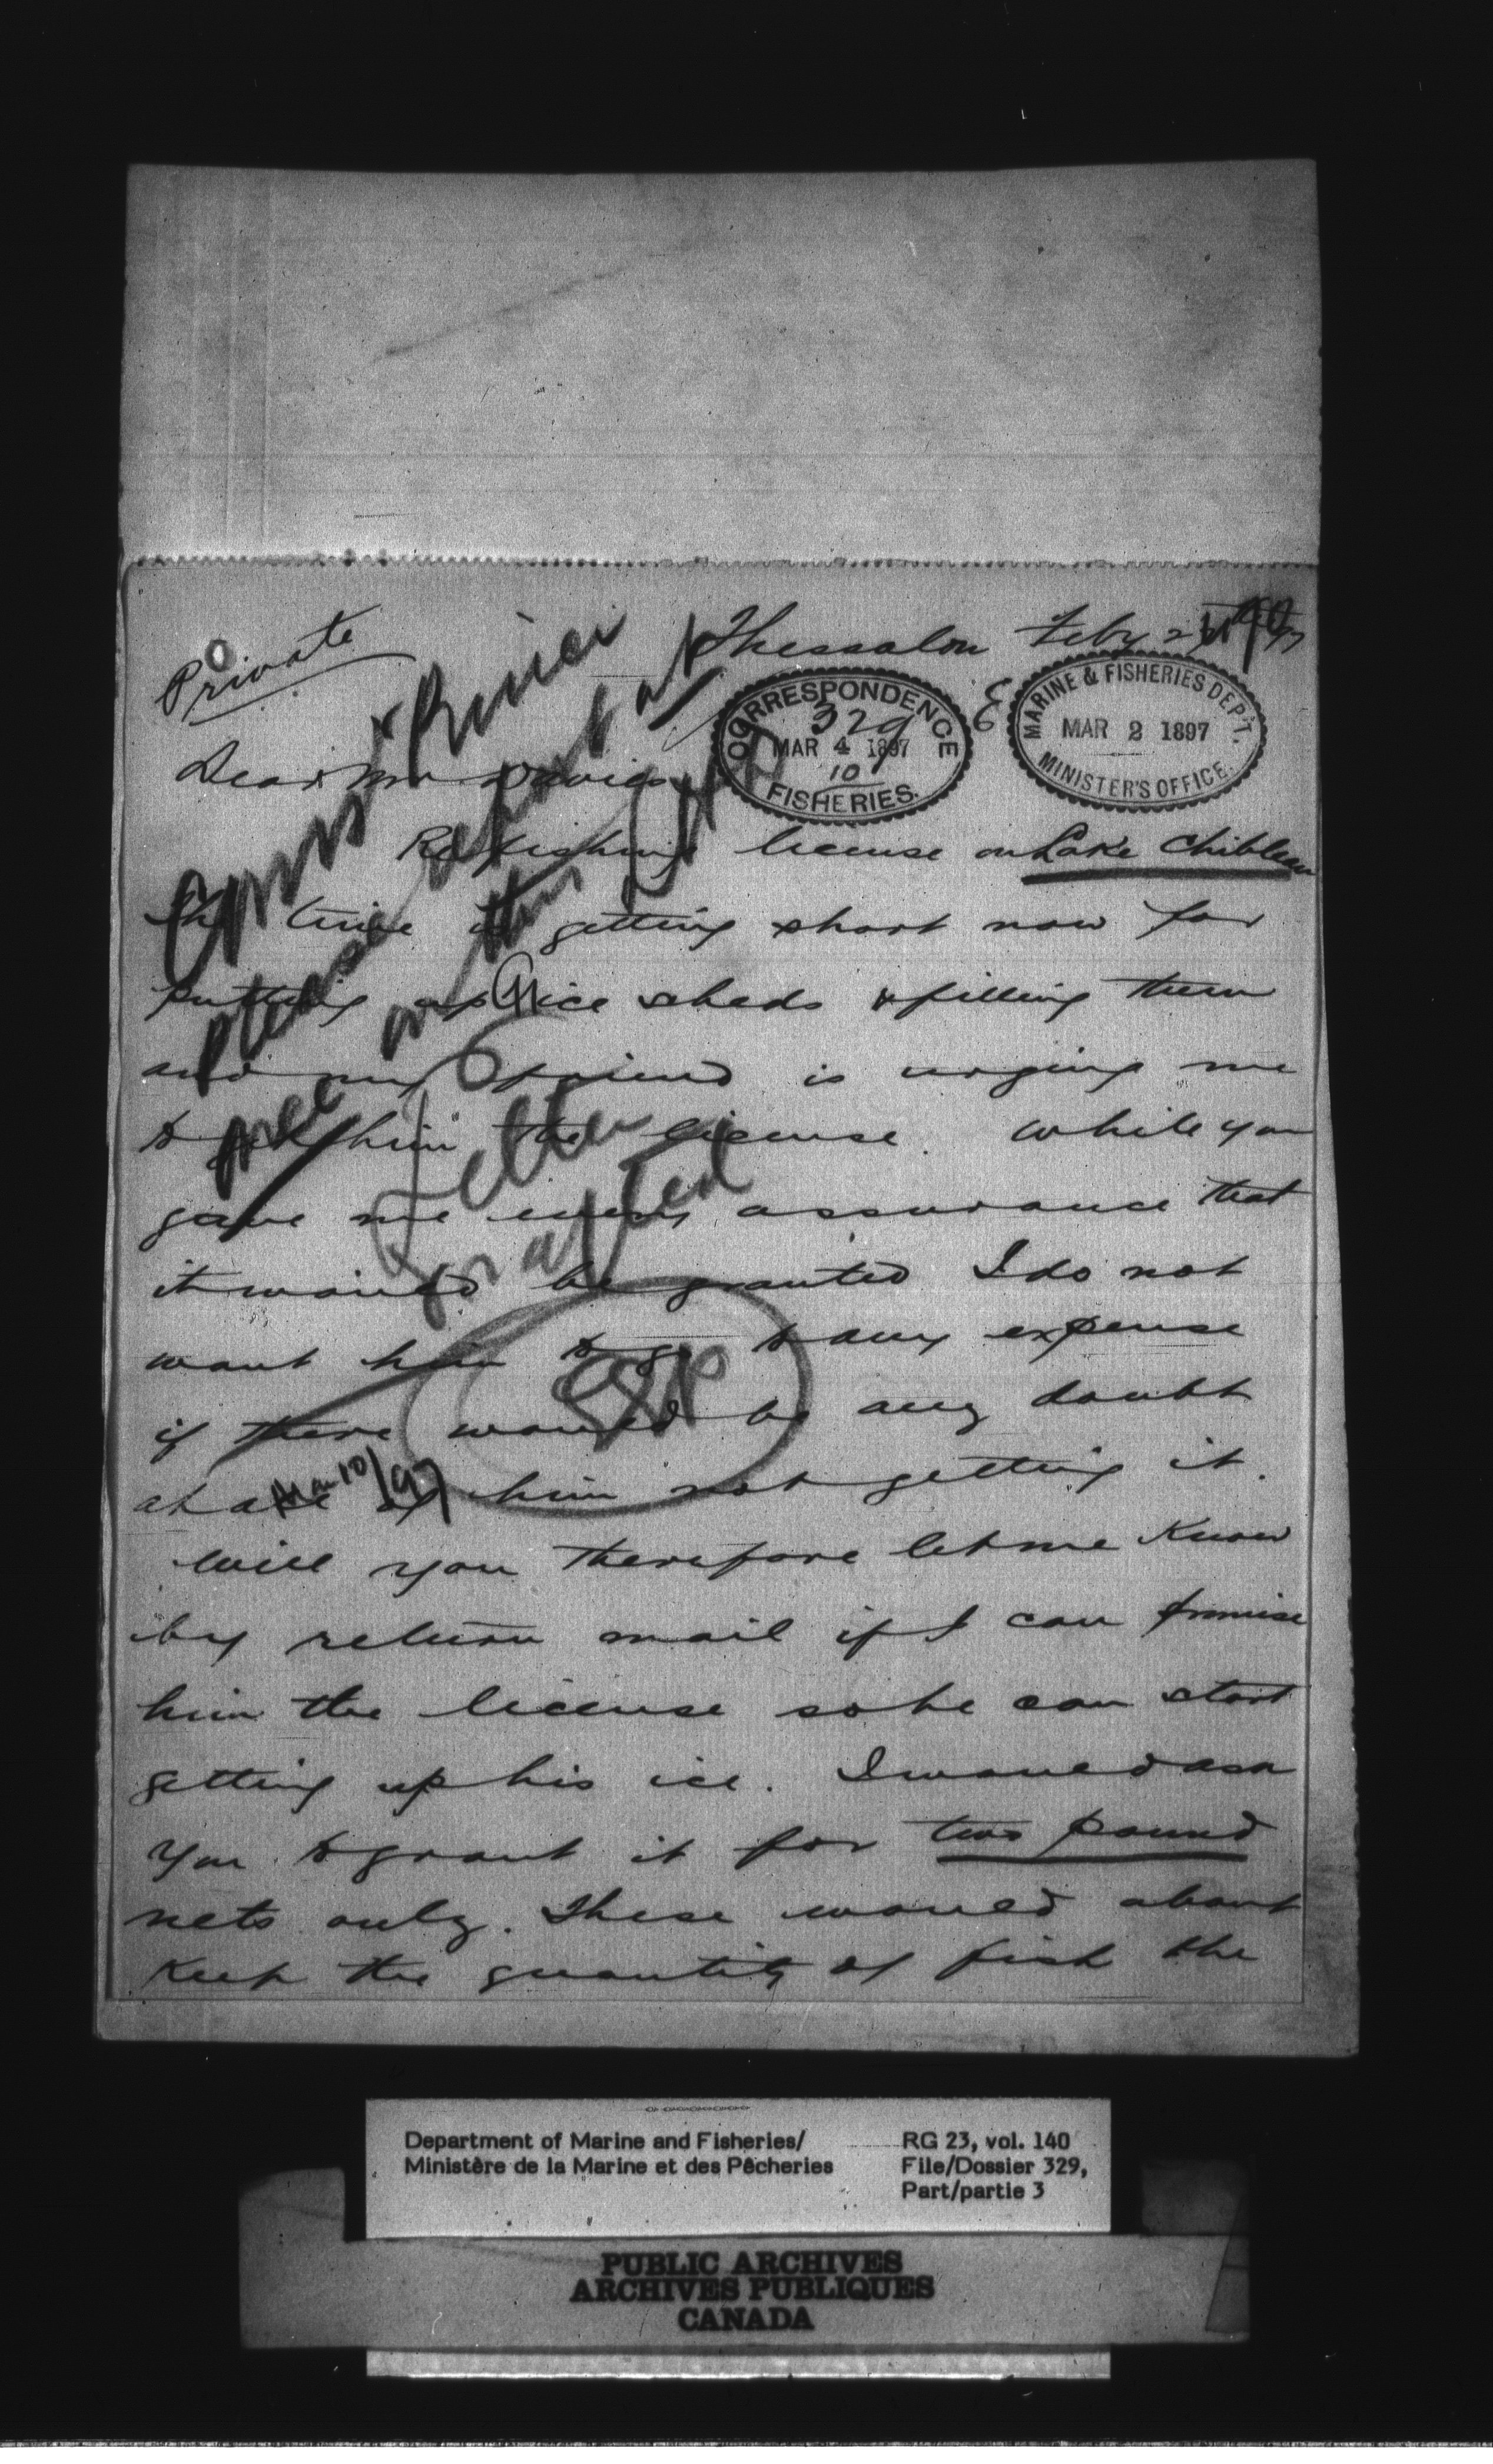 Private
Thessalon Feby
CORRESPONDENCE
329
MAR 4 1897
10
FISHERIES.
E
MARINE & FISHERIES DEP'T.
MAR 2 1897
MINISTER'S OFFICE.
Dear Mr Davies
Commr Prince
please report at
once
on this
Re fishing license on Lake Chiblean
The time is getting short now for
putting up ice sheds & filling them
and my friend is urging me
to get him the license. While you
gave me every assurance that
Letter
drafted
it would be granted I do not
want him to go to any expense
EEP
if there would be any doubt
Mar 10/97
at all of him not getting it.
Will you therefore let me know
by return mail if I can promise
him the license so he can start
getting up his ice. I would ask
you to grant it for two pound
nets only. These would about
keep the quantity of fish the
Department of Marine and Fisheries/
Ministère de la Marine et des Pêcheries
RG 23, vol. 140
File/Dossier 329,
Part/partie 3
PUBLIC ARCHIVES
ARCHIVES PUBLIQUES
CANADA